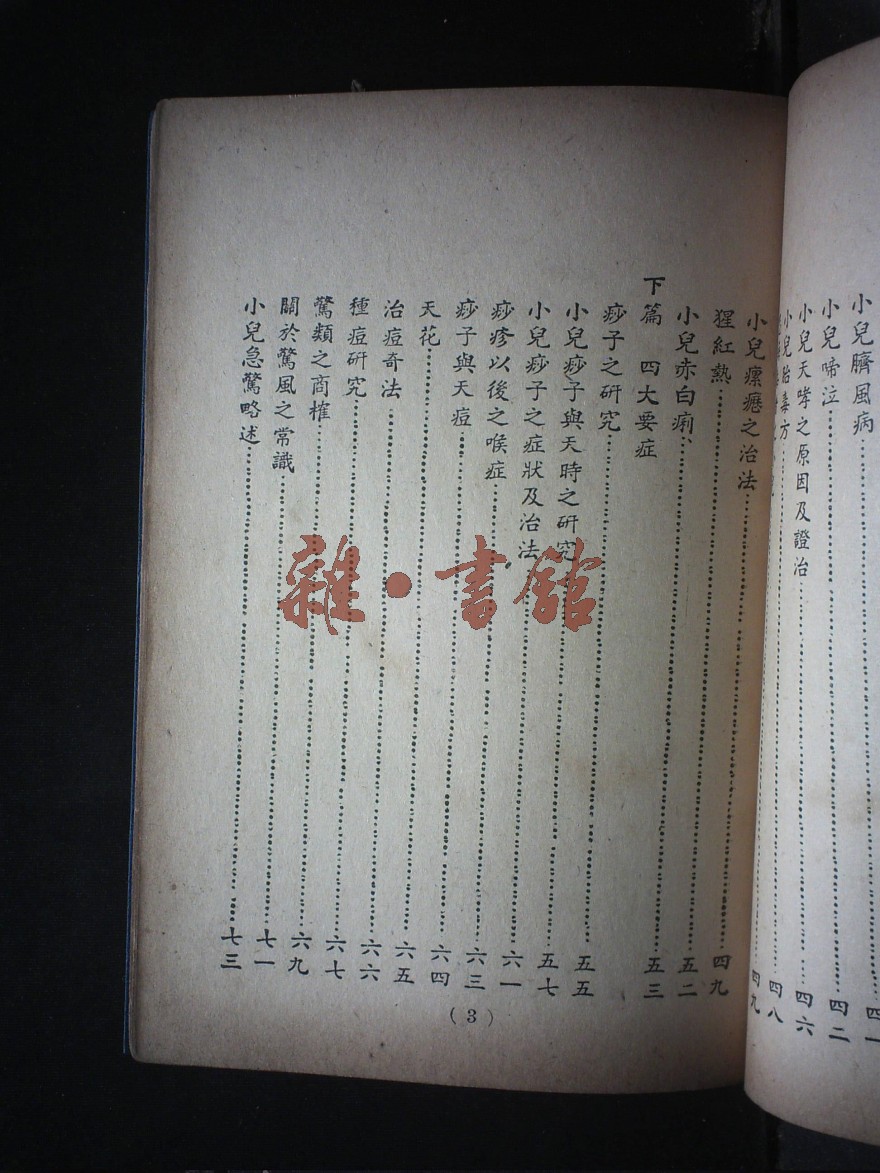 小兒臍風病……四一
小兒啼泣……四二
小兒天哮之原因及證治……四六
小兒胎毒方……四八
四九
小兒瘰癧之治法……四九
猩紅熱……五二
小兒赤白痢……五三
下篇 四大要症
痧子之研究……五五
小兒痧子與天時之研究……五七
小兒痧子之症狀及治法……六一
痧疹以後之喉症……六三
痧子與天痘……六四
天花……六五
治痘奇法……六六
種痘研究……六七
驚類之商榷……六九
關於驚風之常識……七一
小兒急驚略述……七三
(3)
雜·書館